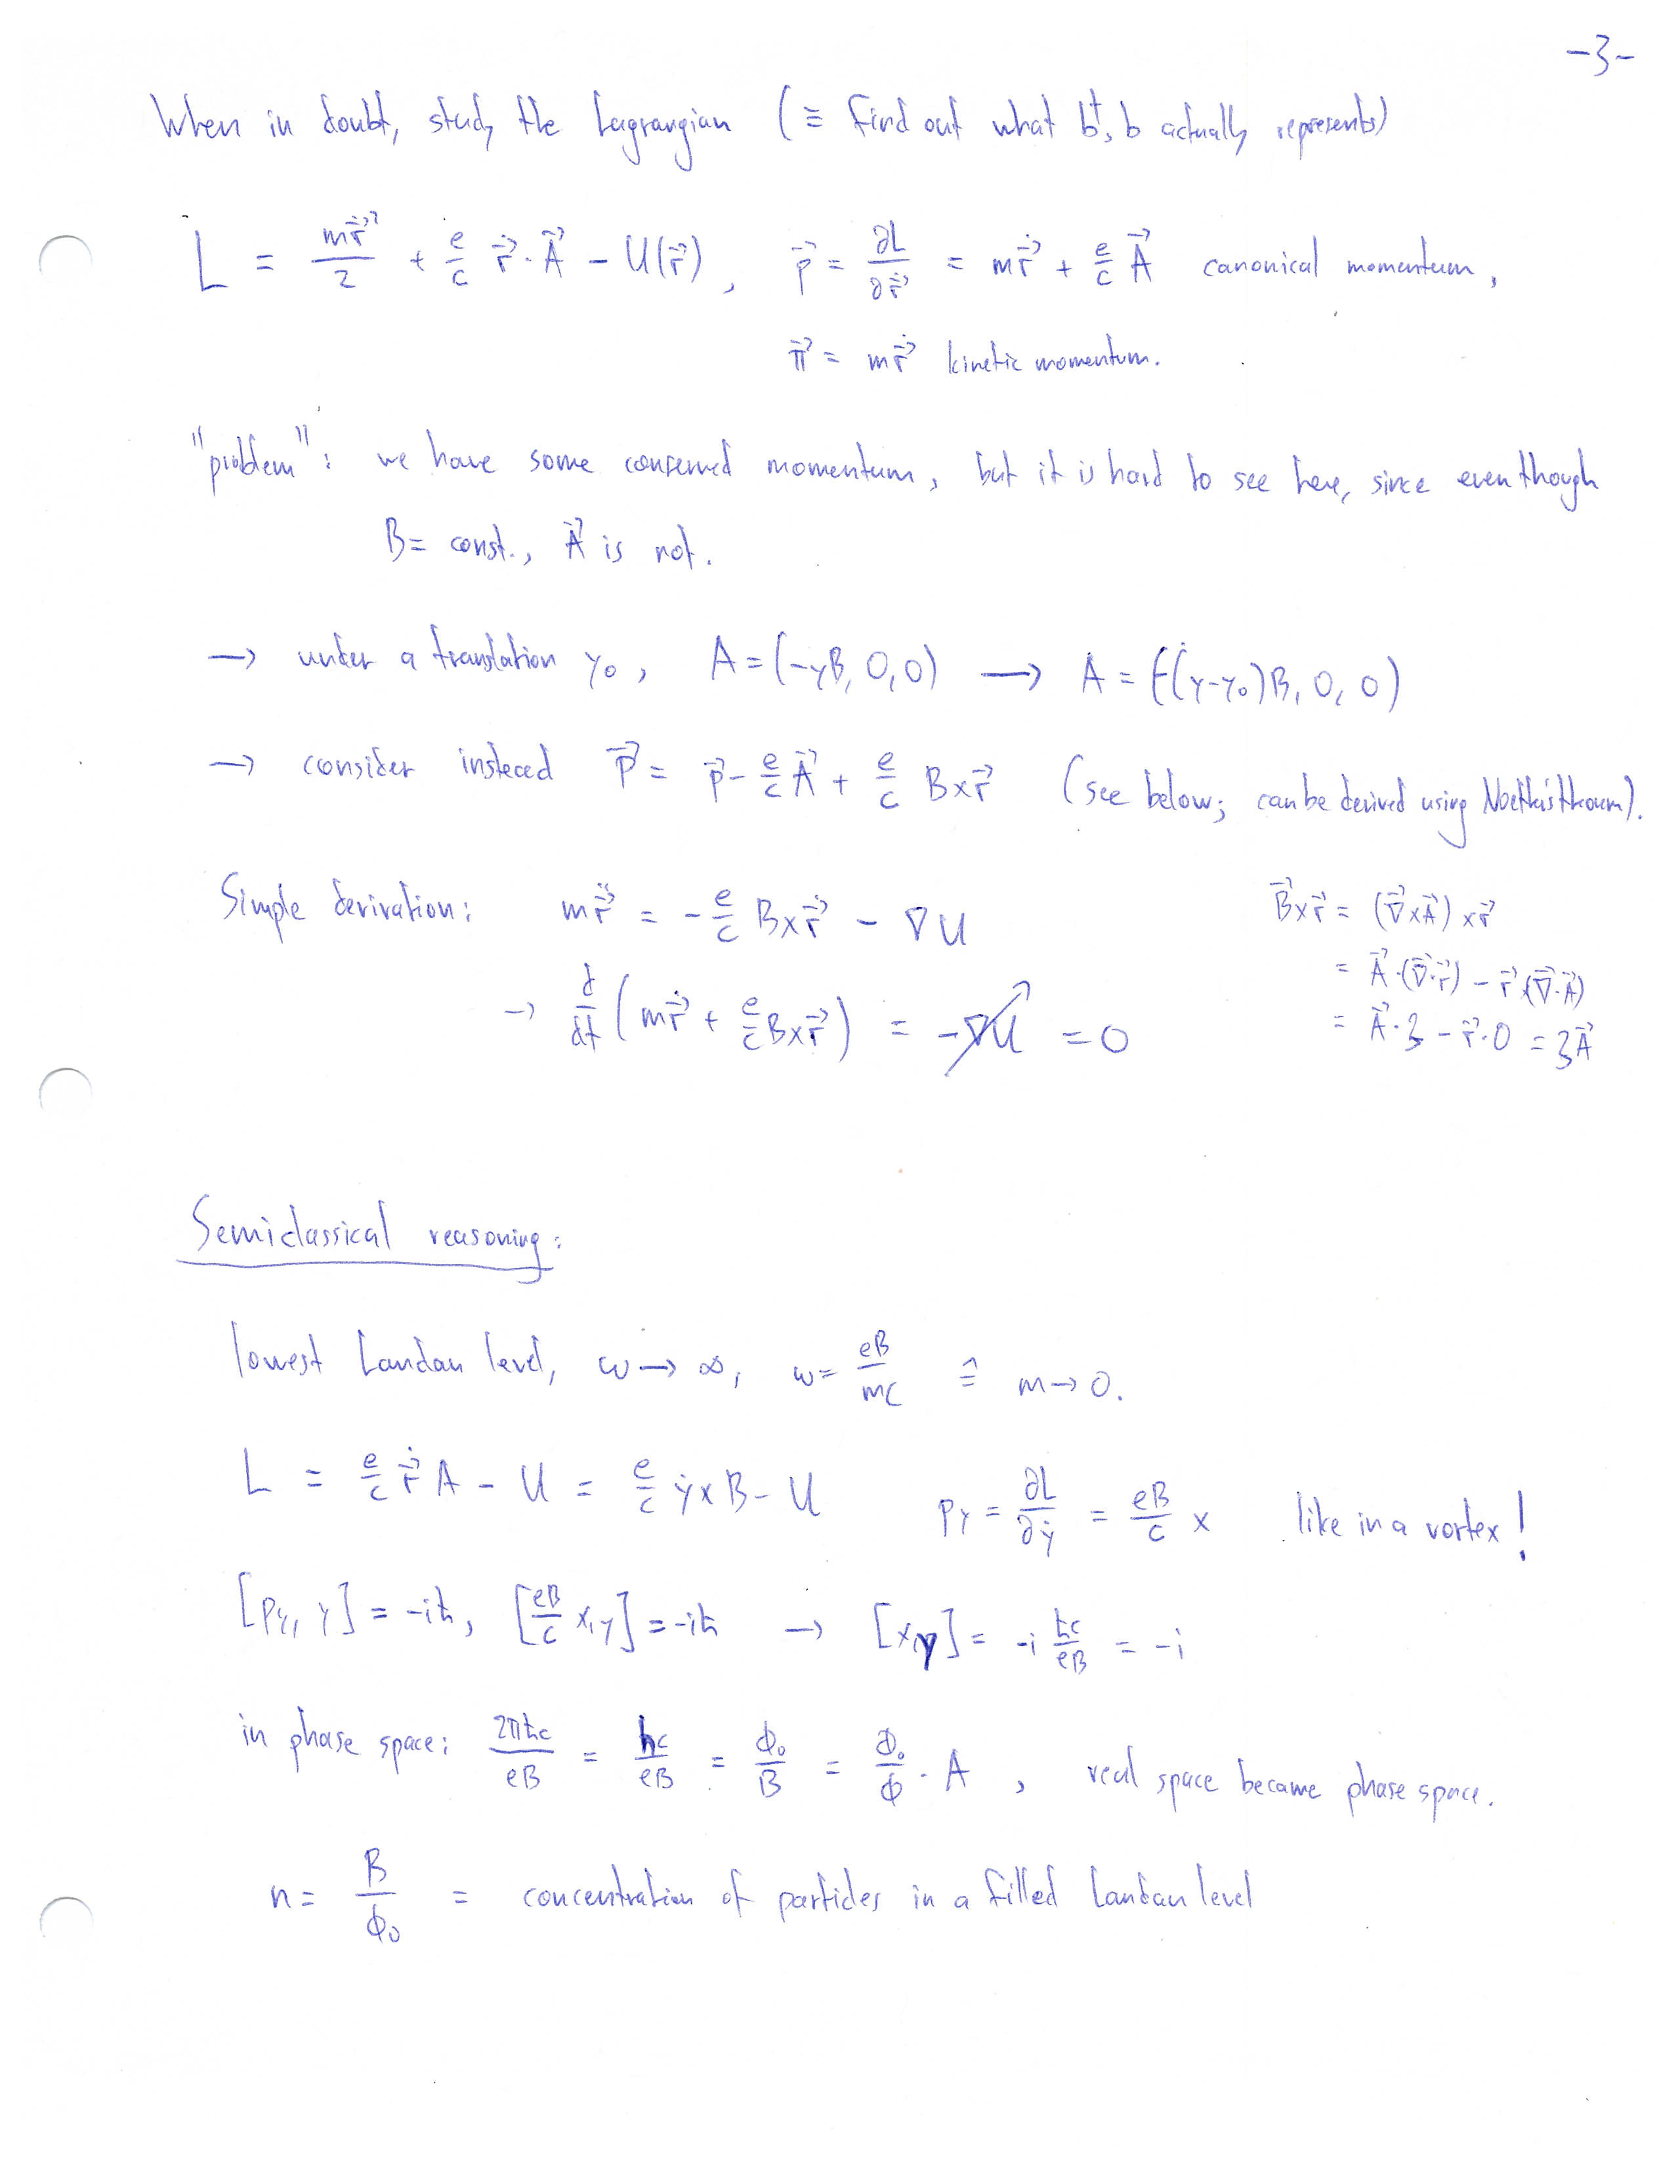 -3-
When in doubt, study the Lagrangian (≡ find out what b†, b actually represents)
L = m\dot{\vec r}²/2 + e/c \dot{\vec r}·\vec A - U(\vec r), \vec p = ∂L/∂\dot{\vec r} = m\dot{\vec r} + e/c \vec A canonical momentum,
\vec π = m\dot{\vec r} kinetic momentum.
"problem": we have some conserved momentum, but it is hard to see here, since even though
B = const., \vec A is not.
→ under a translation y₀, A = (-yB, 0, 0) → A = (-(y-y₀)B, 0, 0)
→ consider instead \vec P = \vec p - e/c \vec A + e/c B×\vec r (see below; can be derived using Noether's theorem).
Simple derivation: m\ddot{\vec r} = - e/c B×\dot{\vec r} - ∇U
→ d/dt (m\dot{\vec r} + e/c B×\vec r) = -∇U = 0
\vec B×\vec r = (\vec ∇×\vec A)×\vec r
= \vec A·(\vec ∇·\vec r) - \vec r·(\vec ∇·\vec A)
= \vec A·3 - \vec r·0 = 3\vec A
Semiclassical reasoning:
lowest Landau level, ω → ∞, ω = eB/mc ≙ m → 0.
L = e/c \dot{\vec r} A - U = e/c \dot y x B - U p_y = ∂L/∂\dot y = eB/c x like in a vortex!
[p_y, y] = -iħ, [eB/c x, y] = -iħ → [x, y] = -i ħc/eB = -i
in phase space: 2πħc/eB = hc/eB = Φ₀/B = Φ₀/Φ · A, real space became phase space.
n = B/Φ₀ = concentration of particles in a filled Landau level